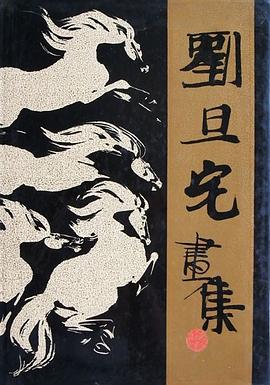 劉旦宅畫集